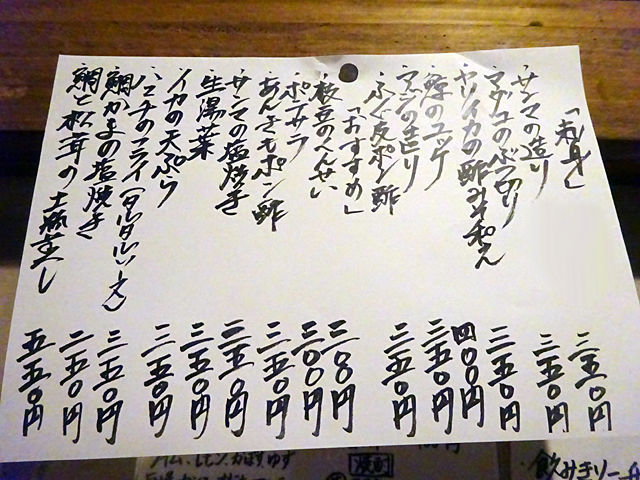 「刺身」
サンマの造り 三五〇円
マグロのぶつ切り 三五〇円
ヤリイカの酢みそ和え 三五〇円
鯨のユッケ 四〇〇円
アジの造り 三五〇円
ふぐ皮ポン酢 三五〇円
「おすすめ」
枝豆の 三〇〇円
ポテサラ 三〇〇円
あんきもポン酢 三五〇円
サンマの塩焼き 三五〇円
生湯葉 三五〇円
イカの天ぷら 三五〇円
ハマチのフライ(タルタルソース) 三五〇円
鯛かまの塩焼き 二五〇円
鯛と松茸の土瓶蒸し 五五〇円
ライム、レモン、かぼす、ゆず
飲みきり